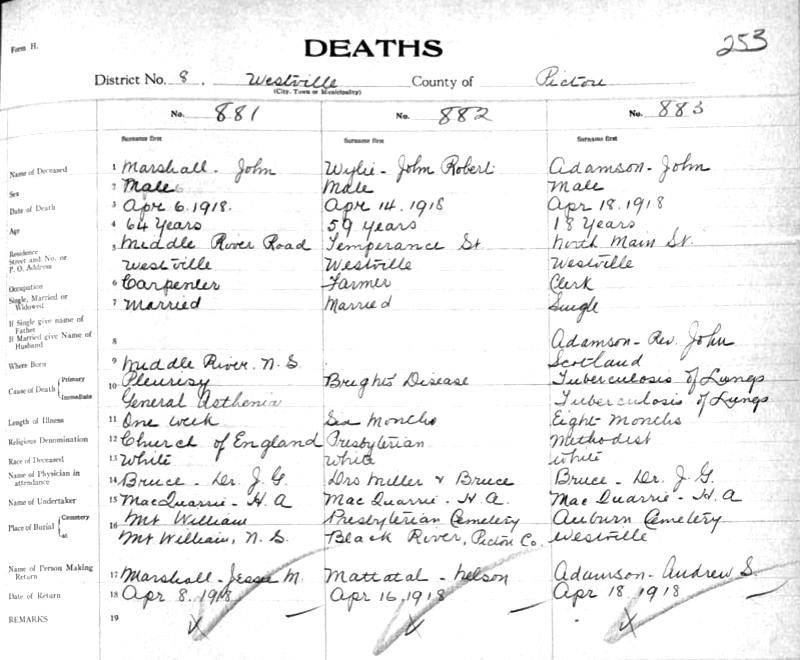 Form H.
DEATHS
253
District No. 8. Westville County of Pictou
(City, Town or Municipality)
No. 881 No. 882 No. 883
Surname first Surname first Surname first
Name of Deceased 1 Marshall - John Wylie - John Robert Adamson - John
Sex 2 Male Male Male
Date of Death 3 Apr 6. 1918. Apr 14. 1918 Apr 18. 1918
Age 4 64 Years 59 Years 18 Years
Residence Street and No. or P. O. Address 5 Middle River Road Temperance St. North Main St.
Westville Westville Westville
Occupation 6 Carpenter Farmer Clerk
Single, Married or Widowed 7 Married Married Single
If Single give name of Father
If Married give Name of Husband 8 Adamson - Rev. John
Where Born 9 Middle River. N. S. Scotland
Cause of Death Primary 10 Pleurisy Brights Disease Tuberculosis of Lungs
Immediate General Asthenia Tuberculosis of Lungs
Length of Illness 11 One week Six Months Eight Months
Religious Denomination 12 Church of England Presbyterian Methodist
Race of Deceased 13 White White White
Name of Physician in attendance 14 Bruce - Dr. J. G. Drs Miller & Bruce Bruce - Dr. J. G.
Name of Undertaker 15 MacQuarrie - H. A MacQuarrie - H. A. MacQuarrie - H. A
Place of Burial Cemetery 16 Mt William Presbyterian Cemetery Auburn Cemetery
at Mt William, N. S. Black River, Pictou Co. Westville
Name of Person Making Return 17 Marshall - Jessie M. Mattatal - Nelson Adamson - Andrew S.
Date of Return 18 Apr 8. 1918 Apr 16, 1918 Apr 18, 1918
REMARKS 19 x x x